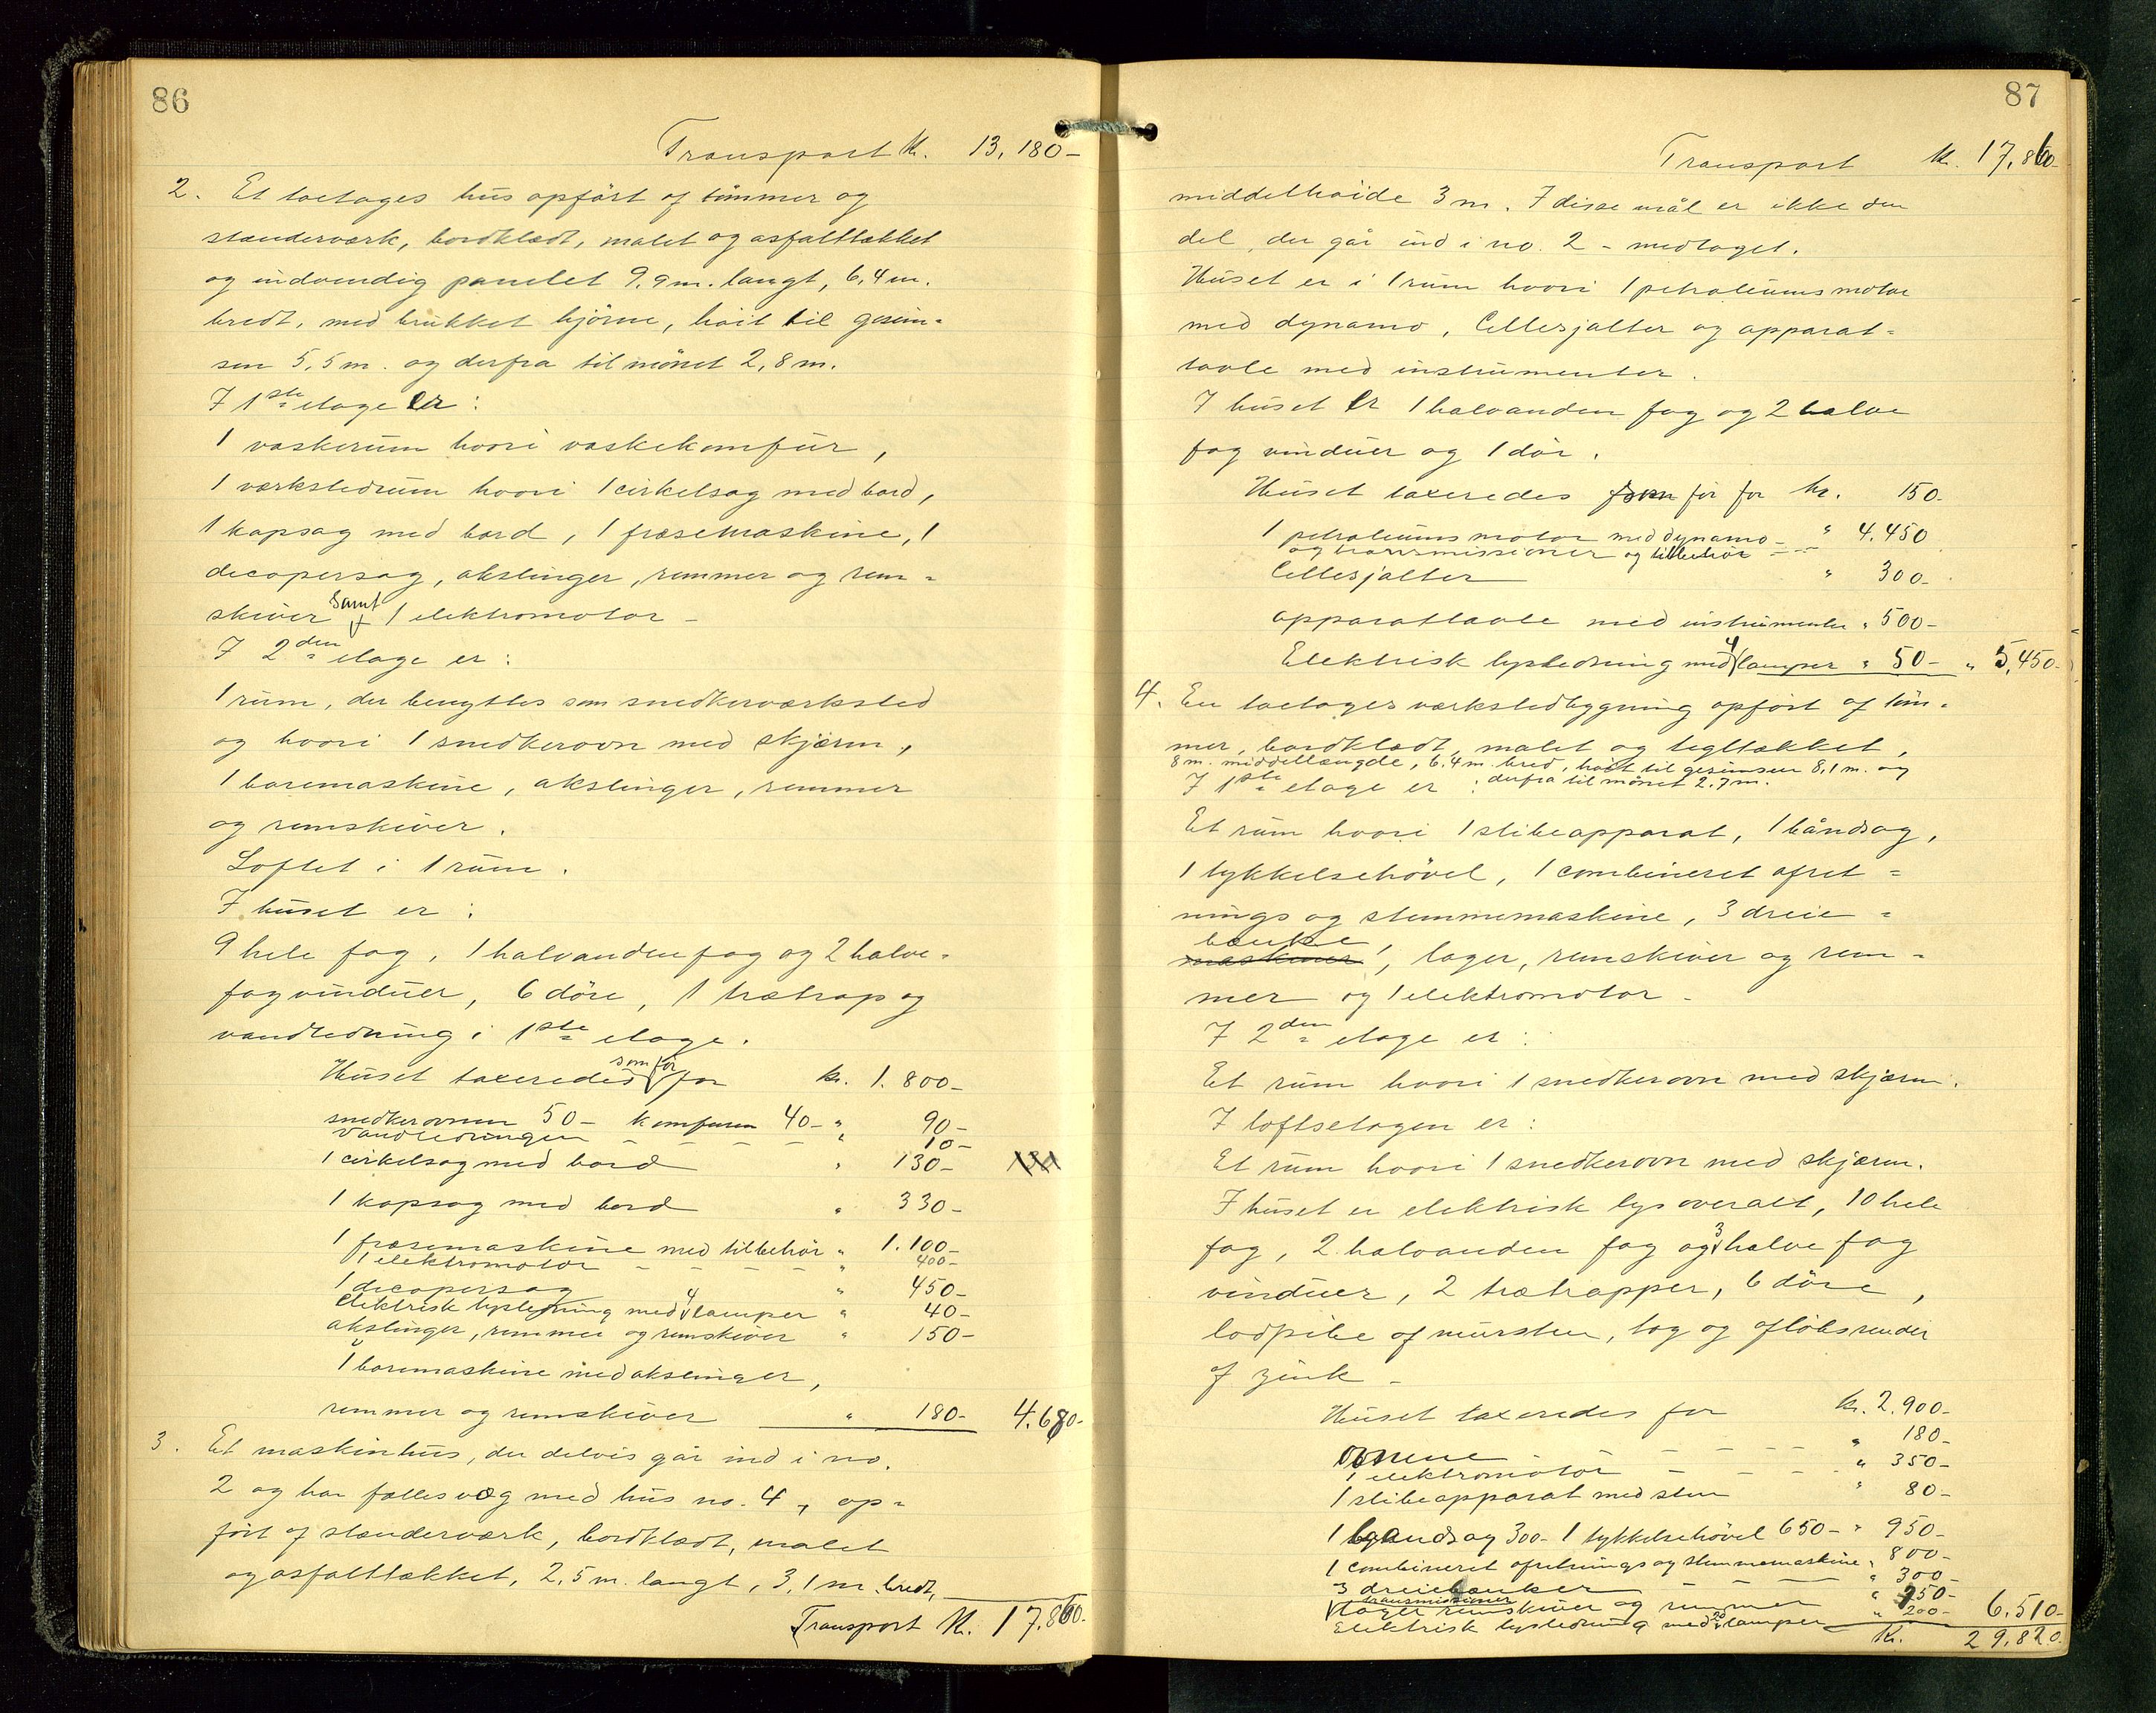 86
Transport Kr. 13,180-
2. Et toetages hus opført af tømmer og
stænderværk, bordklædt, malet og asfalttækket
og indvendig panelet 9,9 m. langt, 6,4 m.
bredt, med brukket hjørne, høit til gesim=
sen 5,5 m. og derfra til mønet 2,8 m.
I 1ste etage er:
1 vaskerum hvori vaskekomfur,
1 værkstedrum hvori 1 cirkelsag med bord,
1 kapsag med bord, 1 fræsemaskine, 1
decopersag, akslinger, remmer og rem=
skiver samt 1 elektromotor -
I 2den etage er:
1 rum, der benyttes som snedkerværksted
og hvori 1 snedkerovn med skjærm,
1 boremaskine, akslinger, remmer
og remskiver.
Loftet i 1 rum.
I huset er:
9 hele fag, 1 halvanden fag og 2 halve-
fag vinduer, 6 døre, 1 trætrap og
vandledning i 1ste etage.
Huset taxeredes som før for kr. 1.800-
snedkerovnen 50- komfuren 40- " 90-
vandledningen - - - - " 10-
1 cirkelsag med bord " 130-
1 kapsag med bord " 330-
1 fræsemaskine med tilbehør " 1.100-
1 elektromotor - - - - " 400-
1 decopersag " 450-
Elektrisk lysledning med 4 lamper " 40-
akslinger, remmer og remskiver " 150-
1 boremaskine med akslinger,
remmer og remskiver " 180- 4.680-
3. Et maskinhus, der delvis går ind i no.
2 og har fælles væg med hus no. 4, op=
ført af stænderværk, bordklædt, malet
og asfalttækket, 2,5 m. langt, 3,1 m. bredt,
Transport Kr. 17.860-
87
Transport Kr. 17,860-
middelhøide 3 m. I disse mål er ikke den
del, der går ind i no. 2 - medtaget.
Huset er i 1 rum hvori 1 petroleumsmotor
med dynamo, Cellesjalter og apparat=
tavle med instrumenter.
I huset er 1 halvanden fag og 2 halve
fag vinduer og 1 dør.
Huset taxeredes som før for kr. 150-
1 petroleumsmotor med dynamo - " 4.450
og transmissioner og tilbehør - -
Cellesjalter " 300-
apparattavle med instrumenter " 500-
Elektrisk lysledning med 4 lamper " 50- " 5,450-
4. En toetages værkstedbygning opført af tøm=
mer, bordklædt, malet og tegltækket,
8 m. middellængde, 6,4 m. bred, høit til gesimsen 8,1 m. og
derfra til mønet 2,7 m.
I 1ste etage er:
Et rum hvori 1 slibeapparat, 1 båndsag,
1 tykkelsehøvel, 1 combineret afret=
nings og stemmemaskine, 3 dreie=
bænke
maskiner, lager, remskiver og rem=
mer og 1 elektromotor -
I 2den etage er:
Et rum hvori 1 snedkerovn med skjærm.
I loftsetagen er:
Et rum hvori 1 snedkerovn med skjærm.
I huset er elektrisk lys overalt, 10 hele
fag, 2 halvanden fag og 3 halve fag
vinduer, 2 trætrapper, 6 døre,
lodpibe af mursten, tag og afløbsrender
af zink -
Huset taxeredes for kr. 2.900-
ovnene - - - - " 180-
1 elektromotor - - - - " 350-
1 slibeapparat med sten " 80-
1 baandsag 300- 1 tykkelsehøvel 650- " 950-
1 combineret afretnings og stemmemaskine " 800-
3 dreiebænker " 300-
transmissioner
lager remskiver og remmer " 750-
Elektrisk lysledning med 20 lamper " 200- 6.510-
Kr. 29,820.